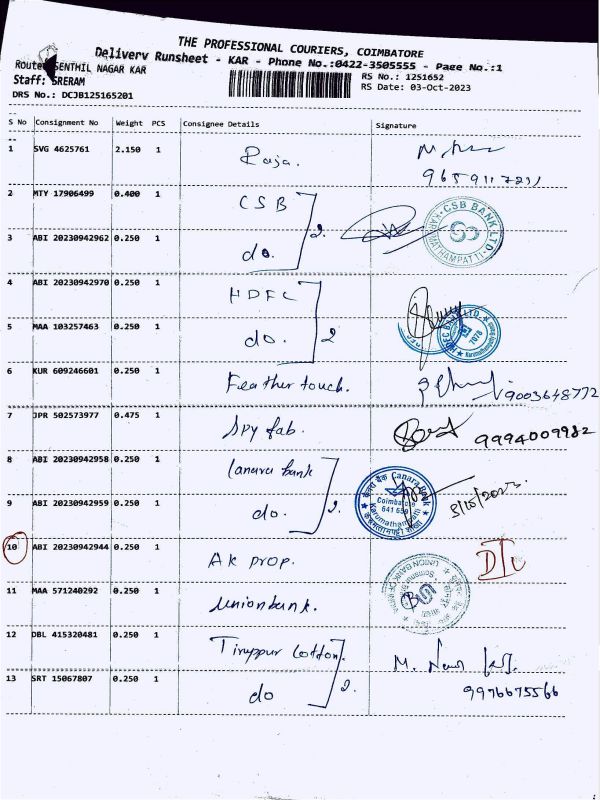 THE PROFESSIONAL COURIERS, COIMBATORE
Delivery Runsheet - KAR - Phone No.:0422-3505555 - Page No.:1
Route: SENTHIL NAGAR KAR
Staff: SRERAM
DRS No.: DCJB125165201
RS No.: 1251652
RS Date: 03-Oct-2023
S No Consignment No Weight PCS Consignee Details Signature
1 SVG 4625761 2.150 1 Raja.
2 MTY 17906499 0.400 1 CSB
CSB BANK LTD
KARUMATHAMPATTI
3 ABI 20230942962 0.250 1 do. 2.
4 ABI 20230942970 0.250 1 HDFC
5 MAA 103257463 0.250 1 do. 2
6 KUR 609246601 0.250 1 Feather touch. 9003648772
7 JPR 502573977 0.475 1 Spy fab. 9994009982
8 ABI 20230942958 0.250 1 Canara bank
केनरा बैंक Canara Bank
Coimbatore
641 659
Karumathampatti
9 ABI 20230942959 0.250 1 do. 2.
10 ABI 20230942944 0.250 1 AK prop.
11 MAA 571240292 0.250 1 Union bank.
UNION BANK OF
12 DBL 415320481 0.250 1 Tiruppur Cotton.
13 SRT 15067807 0.250 1 do 2. 9976675566